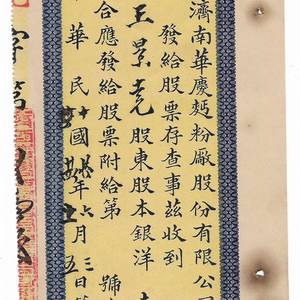 濟南華慶麪粉廠股份有限公
發給股票存查事茲收到
王景堯股東股本銀洋
合應發給股票附給第 號
華民國年六月三日
字第